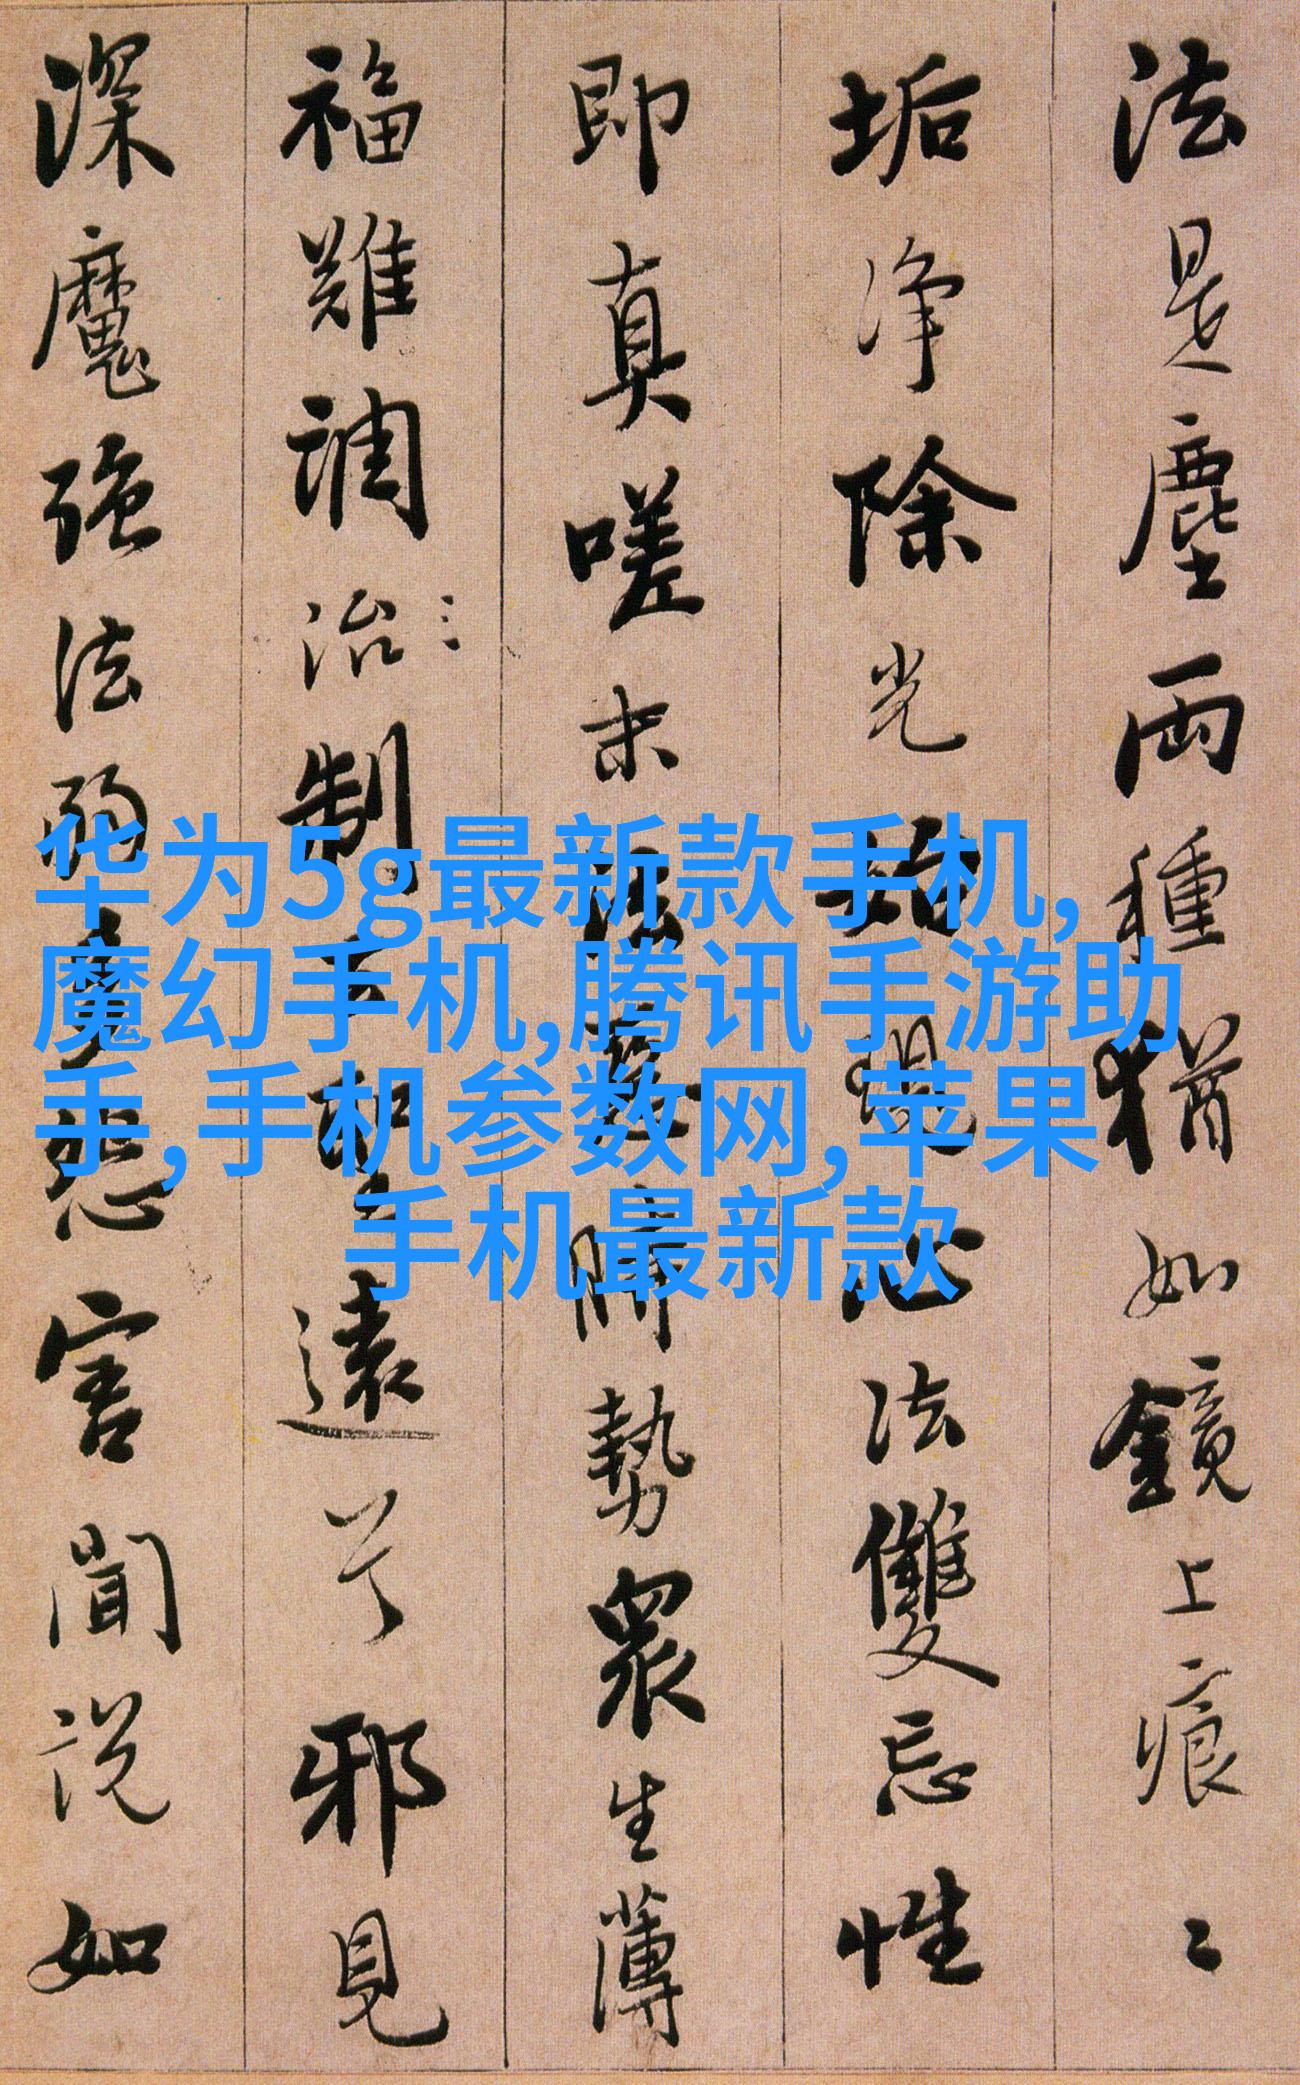 法是塵兩種猶如鏡上痕〻
垢净除光始現心法雙忘性
即真嗟末法惡時勢眾生薄
福難調治制去聖遠兮邪見
深魔強法弱多恐害聞說如
华为5g最新款手机,
魔幻手机,腾讯手游助
手,手机参数网,苹果
手机最新款